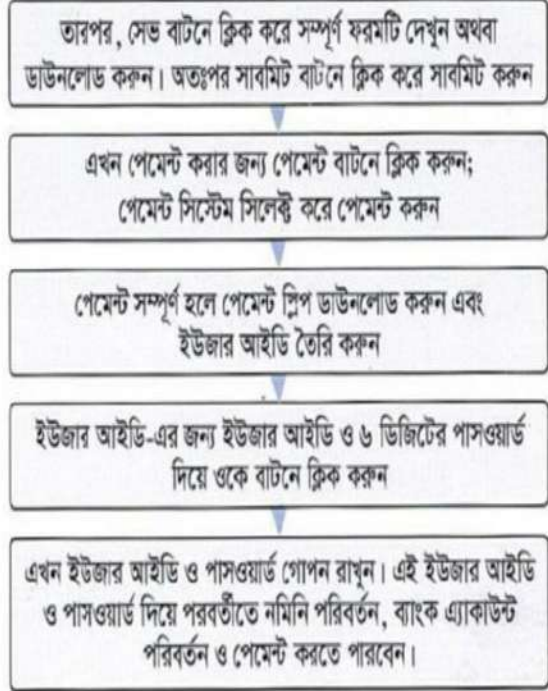 তারপর, সেভ বাটনে ক্লিক করে সম্পূর্ণ ফরমটি দেখুন অথবা
ডাউনলোড করুন। অতঃপর সাবমিট বাটনে ক্লিক করে সাবমিট করুন
এখন পেমেন্ট করার জন্য পেমেন্ট বাটনে ক্লিক করুন;
পেমেন্ট সিস্টেম সিলেক্ট করে পেমেন্ট করুন
পেমেন্ট সম্পূর্ণ হলে পেমেন্ট স্লিপ ডাউনলোড করুন এবং
ইউজার আইডি তৈরি করুন
ইউজার আইডি-এর জন্য ইউজার আইডি ও ৬ ডিজিটের পাসওয়ার্ড
দিয়ে ওকে বাটনে ক্লিক করুন
এখন ইউজার আইডি ও পাসওয়ার্ড গোপন রাখুন। এই ইউজার আইডি
ও পাসওয়ার্ড দিয়ে পরবর্তীতে নমিনি পরিবর্তন, ব্যাংক এ্যাকাউন্ট
পরিবর্তন ও পেমেন্ট করতে পারবেন।